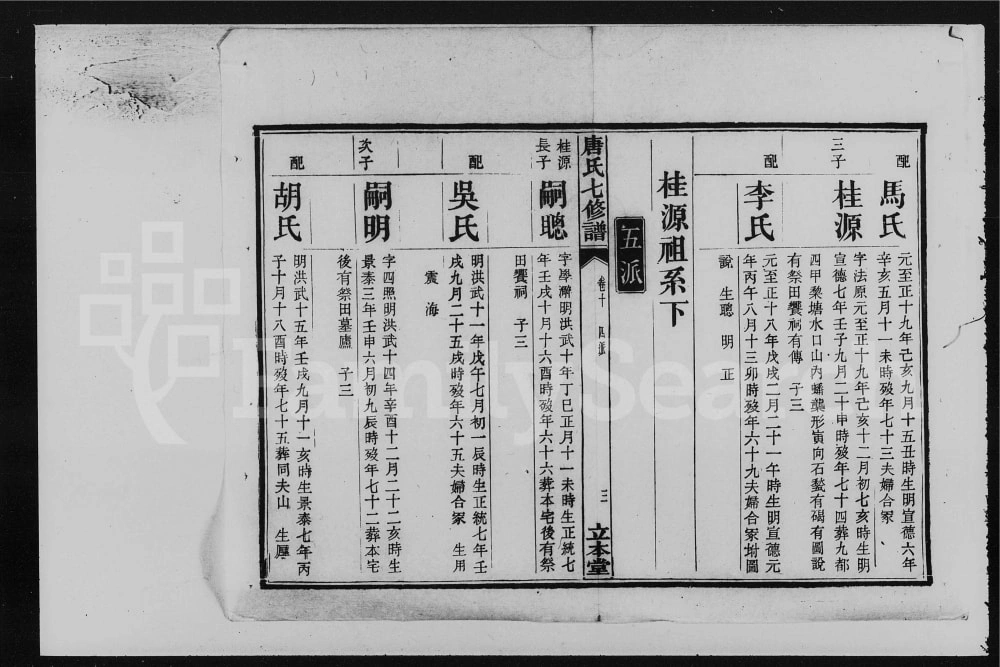 配
馬氏
元至正十九年己亥九月十五丑時生明宣德六年
辛亥五月十一未時殁年七十三夫婦合冢
三子
桂源
字法原元至正十九年己亥十二月初七亥時生明
宣德七年壬子九月二十甲時殁年七十四葬九都
四甲棃塘水口山內蟠龍形寅向石𡎺有碣有圖說
有祭田饗祠有傳 子三
配
李氏
元至正十八年戊戌二月二十一午時生明宣德元
年丙午八月十三卯時殁年六十九夫婦合冢坿圖
說 生聰 明 正
桂源祖系下
五派
唐氏七修譜
卷十 四派
三
立本堂
桂源
長子
嗣聰
字學濳明洪武十年丁巳正月十一未時生正統七
年壬戌十月十六酉時殁年六十六葬本宅後有祭
田饗祠 子三
配
吳氏
明洪武十一年戊午七月初一辰時生正統七年壬
戌九月二十五戌時殁年六十五夫婦合冢 生用
震 海
次子
嗣明
字四熙明洪武十四年辛酉十二月二十二亥時生
景泰三年壬申六月初九辰時殁年七十二葬本宅
後有祭田墓廬 子三
配
胡氏
明洪武十五年壬戌九月十一亥時生景泰七年丙
子十月十八酉時殁年七十五葬同夫山 生厚
FamilySearch